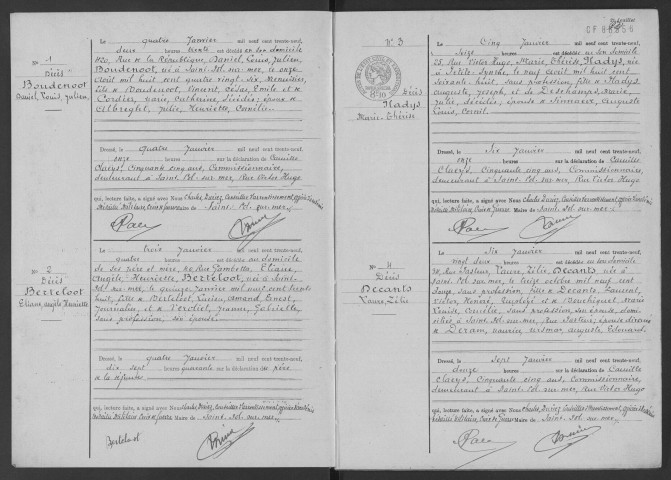 N° 1
Décès
Boudenoot
Daniel, Louis, Julien,
Le quatre Janvier mil neuf cent trente-neuf,
deux heures trente est décédé en son domicile
Rue de la République, Daniel, Louis, Julien,
Boudenoot, né à Saint-Pol-sur-mer, le onze
Août mil huit cent quatre vingt six, Menuisier,
fils de Boudenoot, Vincent, César, Emile et de
Cordier, Marie, Catherine, décédés; époux de
Julie, Henriette, Camélie.
Dressé, le quatre Janvier mil neuf cent trente-neuf,
onze heures sur la déclaration de Camille
Claeys, Cinquante cinq ans, Commissionnaire,
demeurant à Saint Pol sur mer, Rue Victor Hugo
qui, lecture faite, a signé avec Nous Charles
Médaille Militaire, Croix de Guerre Maire de Saint-Pol-sur-mer.
N° 2
Décès
Berteloot
Eliane, Angèle Henriette
Le trois Janvier mil neuf cent trente-neuf,
quatre heures est décédée au domicile
de ses père et mère, Rue Gambetta, Eliane,
Angèle, Henriette, Berteloot, née à Saint-
Pol-sur-mer, le quinze Janvier mil neuf cent trente
huit, fille de Berteloot, Lucien, Amand, Ernest,
Journalier, et de Jeanne, Gabrielle,
sans profession, son épouse.
Dressé, le quatre Janvier mil neuf cent trente-neuf,
dix sept heures quarante sur la déclaration du père
de la défunte
qui, lecture faite, a signé avec Nous Charles
Médaille Militaire Croix de Guerre Maire de Saint-Pol-sur-mer
Berteloot
N° 3
Décès
Hadys
Marie-Thérèse
Le Cinq Janvier mil neuf cent trente-neuf,
Seize heures est décédée en son domicile
Rue Victor Hugo, Marie, Thérèse, Hadys, née
à Petite-Synthe, le neuf Août mil huit cent
soixante huit, sans profession, fille de Hadys,
Auguste, Joseph, et de Deschamps, Marie
Julie, décédés, épouse de Auguste
Louis, Cornil.
Dressé, le six Janvier mil neuf cent trente-neuf,
onze heures sur la déclaration de Camille
Claeys, Cinquante cinq ans, Commissionnaire,
demeurant à Saint Pol sur mer, Rue Victor Hugo
qui, lecture faite, a signé avec Nous Charles
Médaille Militaire Croix de Guerre Maire de Saint-Pol-sur-mer.
N° 4
Décès
Decants
Laure, Zélie
Le Six Janvier mil neuf cent trente-neuf,
vingt deux heures est décédée en son domicile
Rue Pasteur, Laure, Zélie, Decants, née à
Saint Pol sur mer, le treize octobre mil neuf cent
sans profession, fille de Decants, Laurent,
Victor, Henri, et de Marie
Louise, sans profession son épouse, domi-
ciliés à Saint Pol-sur-mer, Rue Pasteur; épouse divorcée
de Deram, Maurice, Auguste Edouard.
Dressé, le sept Janvier mil neuf cent trente-neuf,
douze heures sur la déclaration de Camille
Claeys, Cinquante cinq ans, Commissionnaire,
demeurant à Saint Pol sur mer, Rue Victor Hugo
qui, lecture faite, a signé avec Nous Charles
Médaille Militaire Croix de Guerre Maire de Saint-Pol-sur-mer.